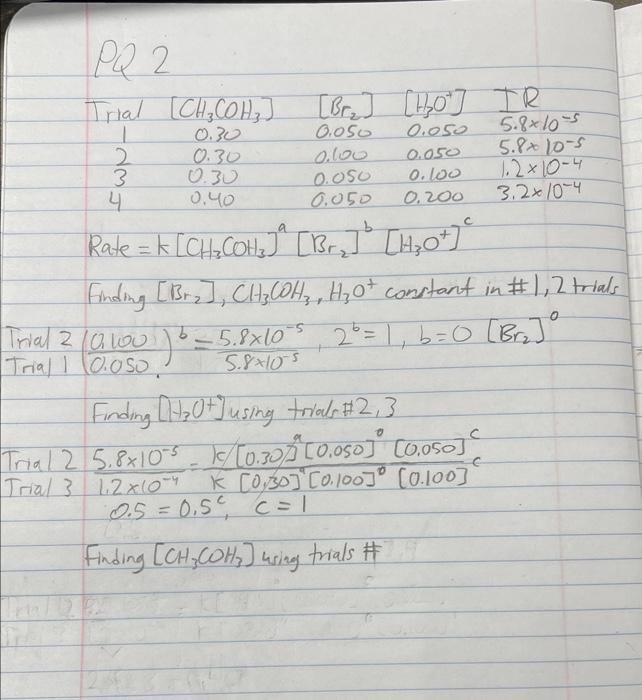 PQ 2
Trial [CH₃COH₃] [Br₂] [H₃O⁺] IR
1 0.30 0.050 0.050 5.8×10⁻⁵
2 0.30 0.100 0.050 5.8×10⁻⁵
3 0.30 0.050 0.100 1.2×10⁻⁴
4 0.40 0.050 0.200 3.2×10⁻⁴
Rate = k[CH₃COH₃]ᵃ [Br₂]ᵇ [H₃O⁺]ᶜ
Finding [Br₂], CH₃COH₃, H₃O⁺ constant in #1,2 trials
Trial 2 (0.100)ᵇ = 5.8×10⁻⁵, 2ᵇ = 1, b = 0 [Br₂]⁰
Trial 1 (0.050) 5.8×10⁻⁵
Finding [H₃O⁺] using trials #2,3
Trial 2 5.8×10⁻⁵ = k [0.30]ᵃ [0.050]⁰ [0.050]ᶜ
Trial 3 1.2×10⁻⁴ k [0.30]ᵃ [0.100]⁰ [0.100]ᶜ
0.5 = 0.5ᶜ, c = 1
Finding [CH₃COH₃] using trials #